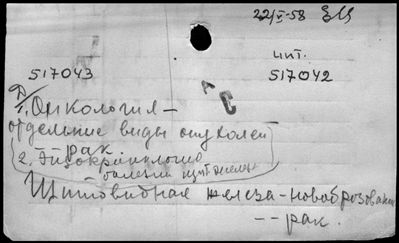 22/V-58
цит.
517043
517042
А С
1. Онкология –
отдельные виды опухолей
– рак
2. Эндокринология
болезни щит. железы
Щитовидная железа - новообразования
-- рак.